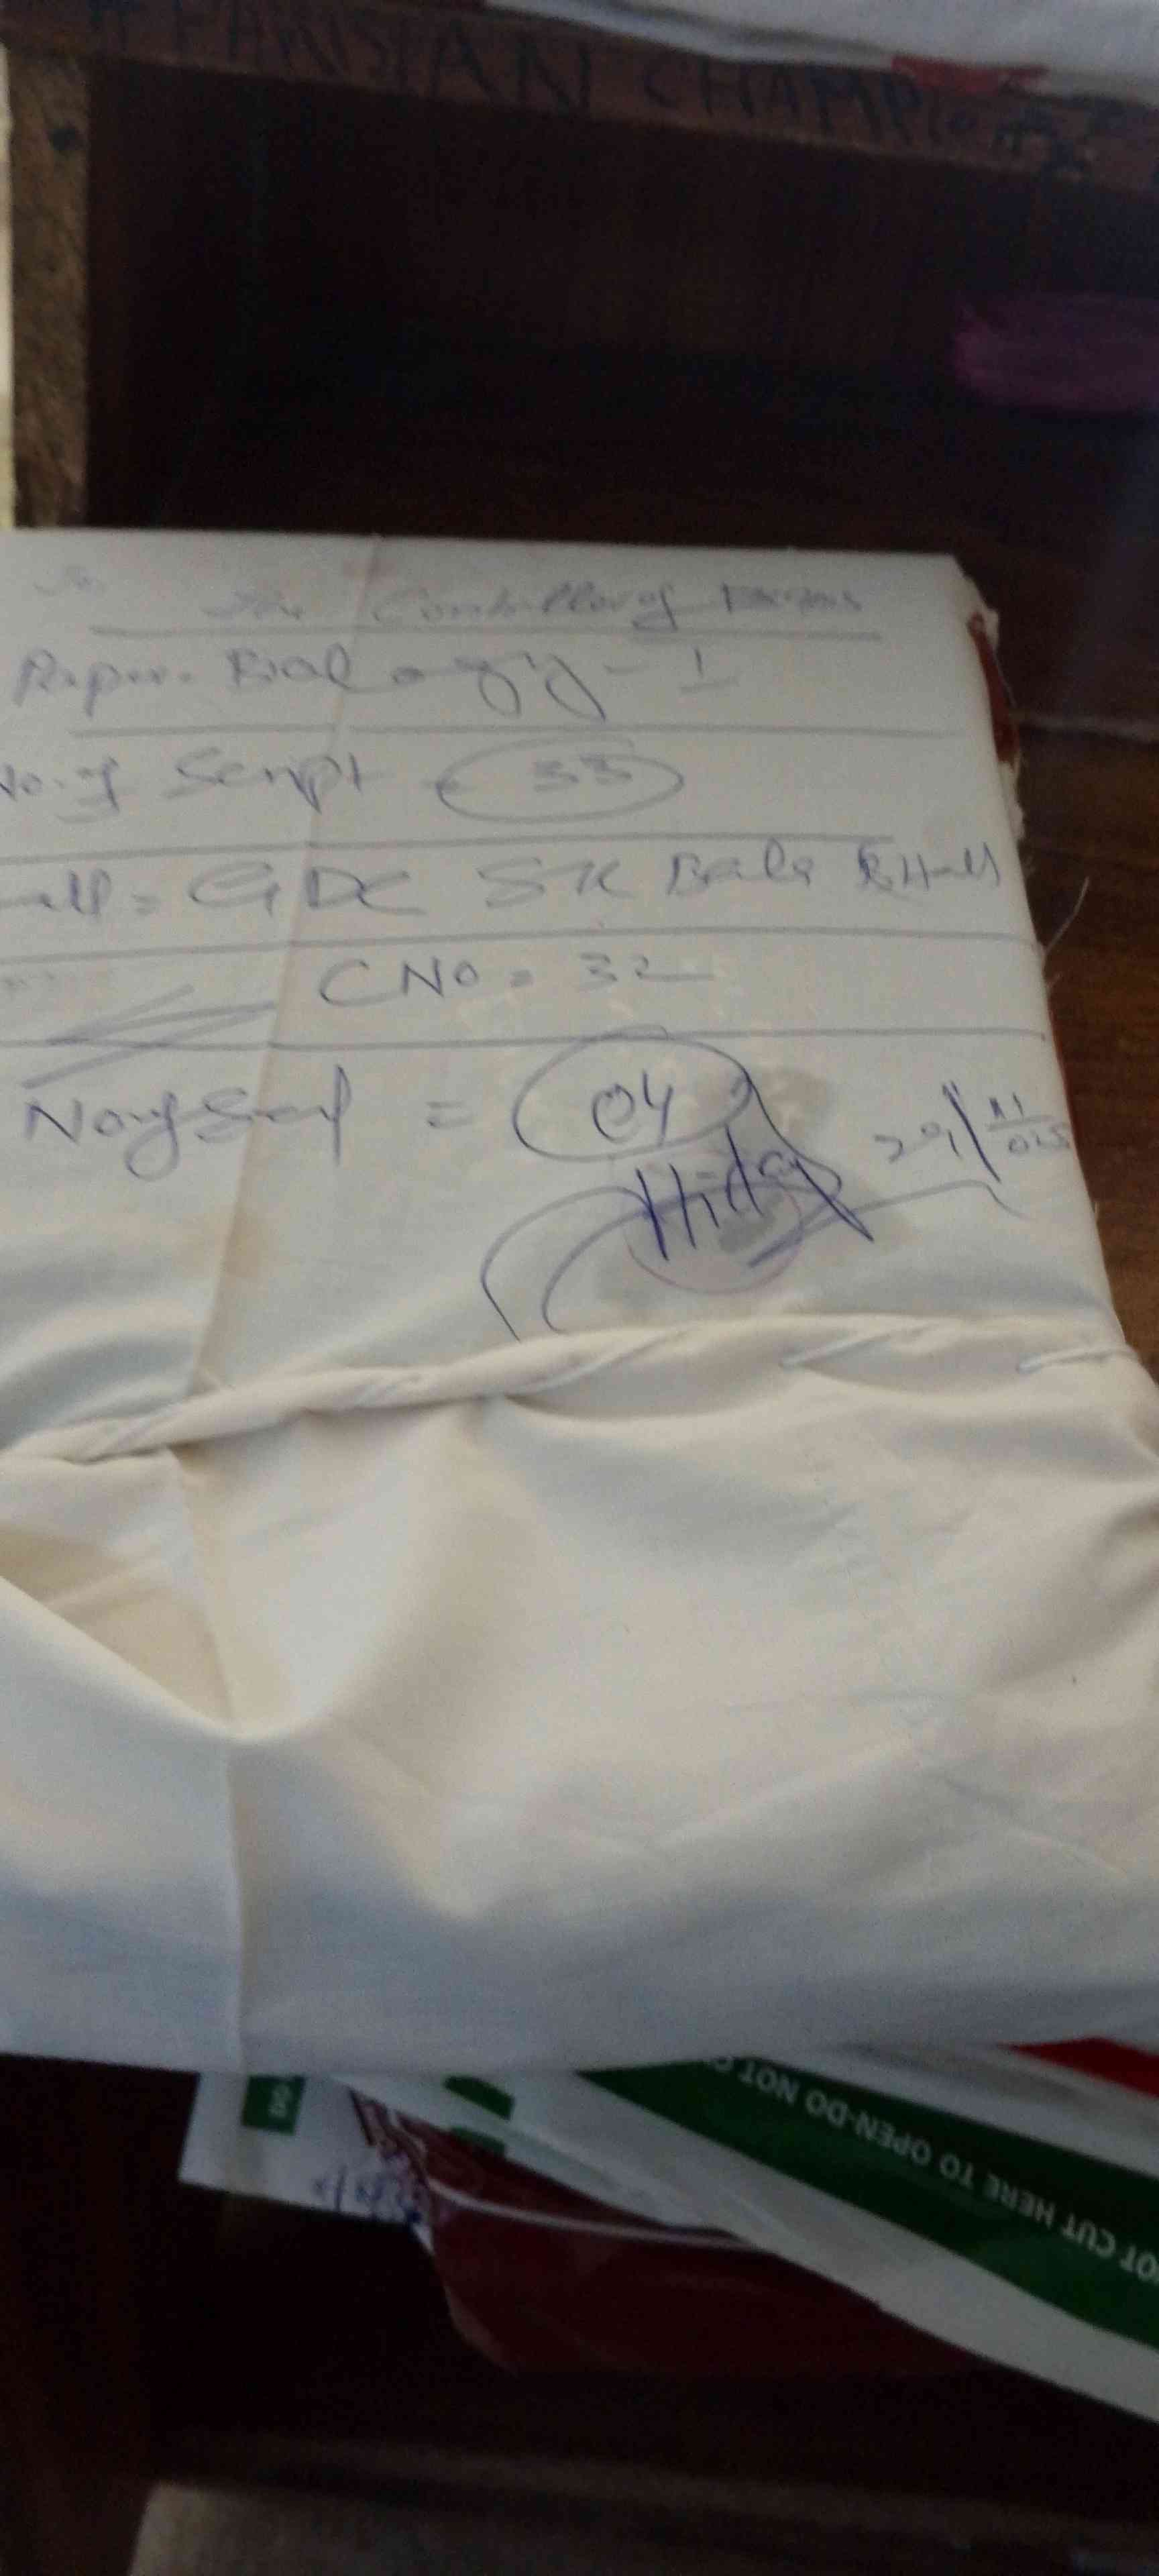 PAKISTAN CHAMPIO
To
The Controller of Exams
Paper. Biology - I
No. of Script = 33
Hall = GDC SK Bala B Hall
CNO = 32
No of Seal = 04
29/11/025
NOT CUT HERE TO OPEN-DO NOT C